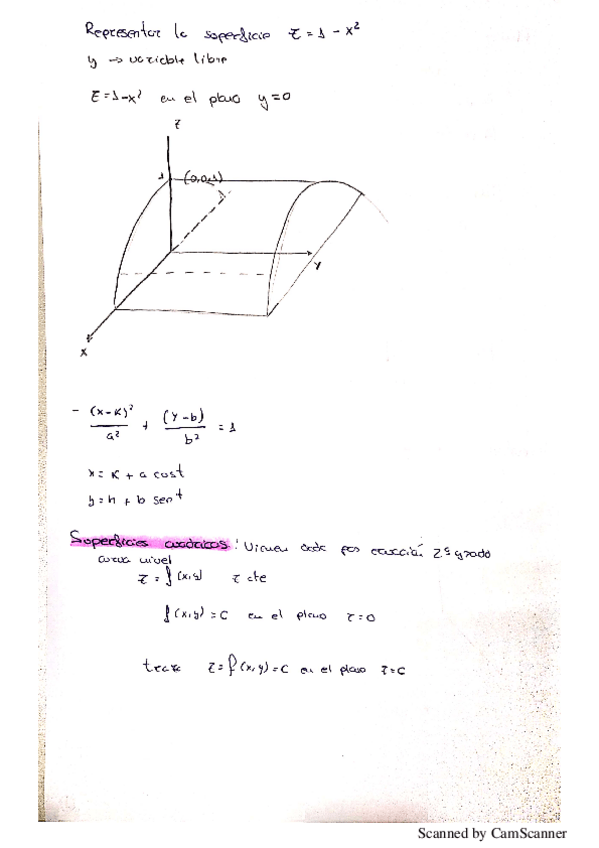 Representar la superficie z = 1 - x²
y → variable libre
z = 1-x² en el plano y=0
z
1 (0,0,1)
y
x
- (x-k)²/a² + (y-b)/b² = 1
x = k + a cost
y = h + b sent
Superficies cuadricas: Vienen dada por ecuación 2º grado
curva nivel
z = f(x,y) z cte
f(x,y) = c en el plano z=0
traza z = f(x,y) = c en el plano z=c
Scanned by CamScanner